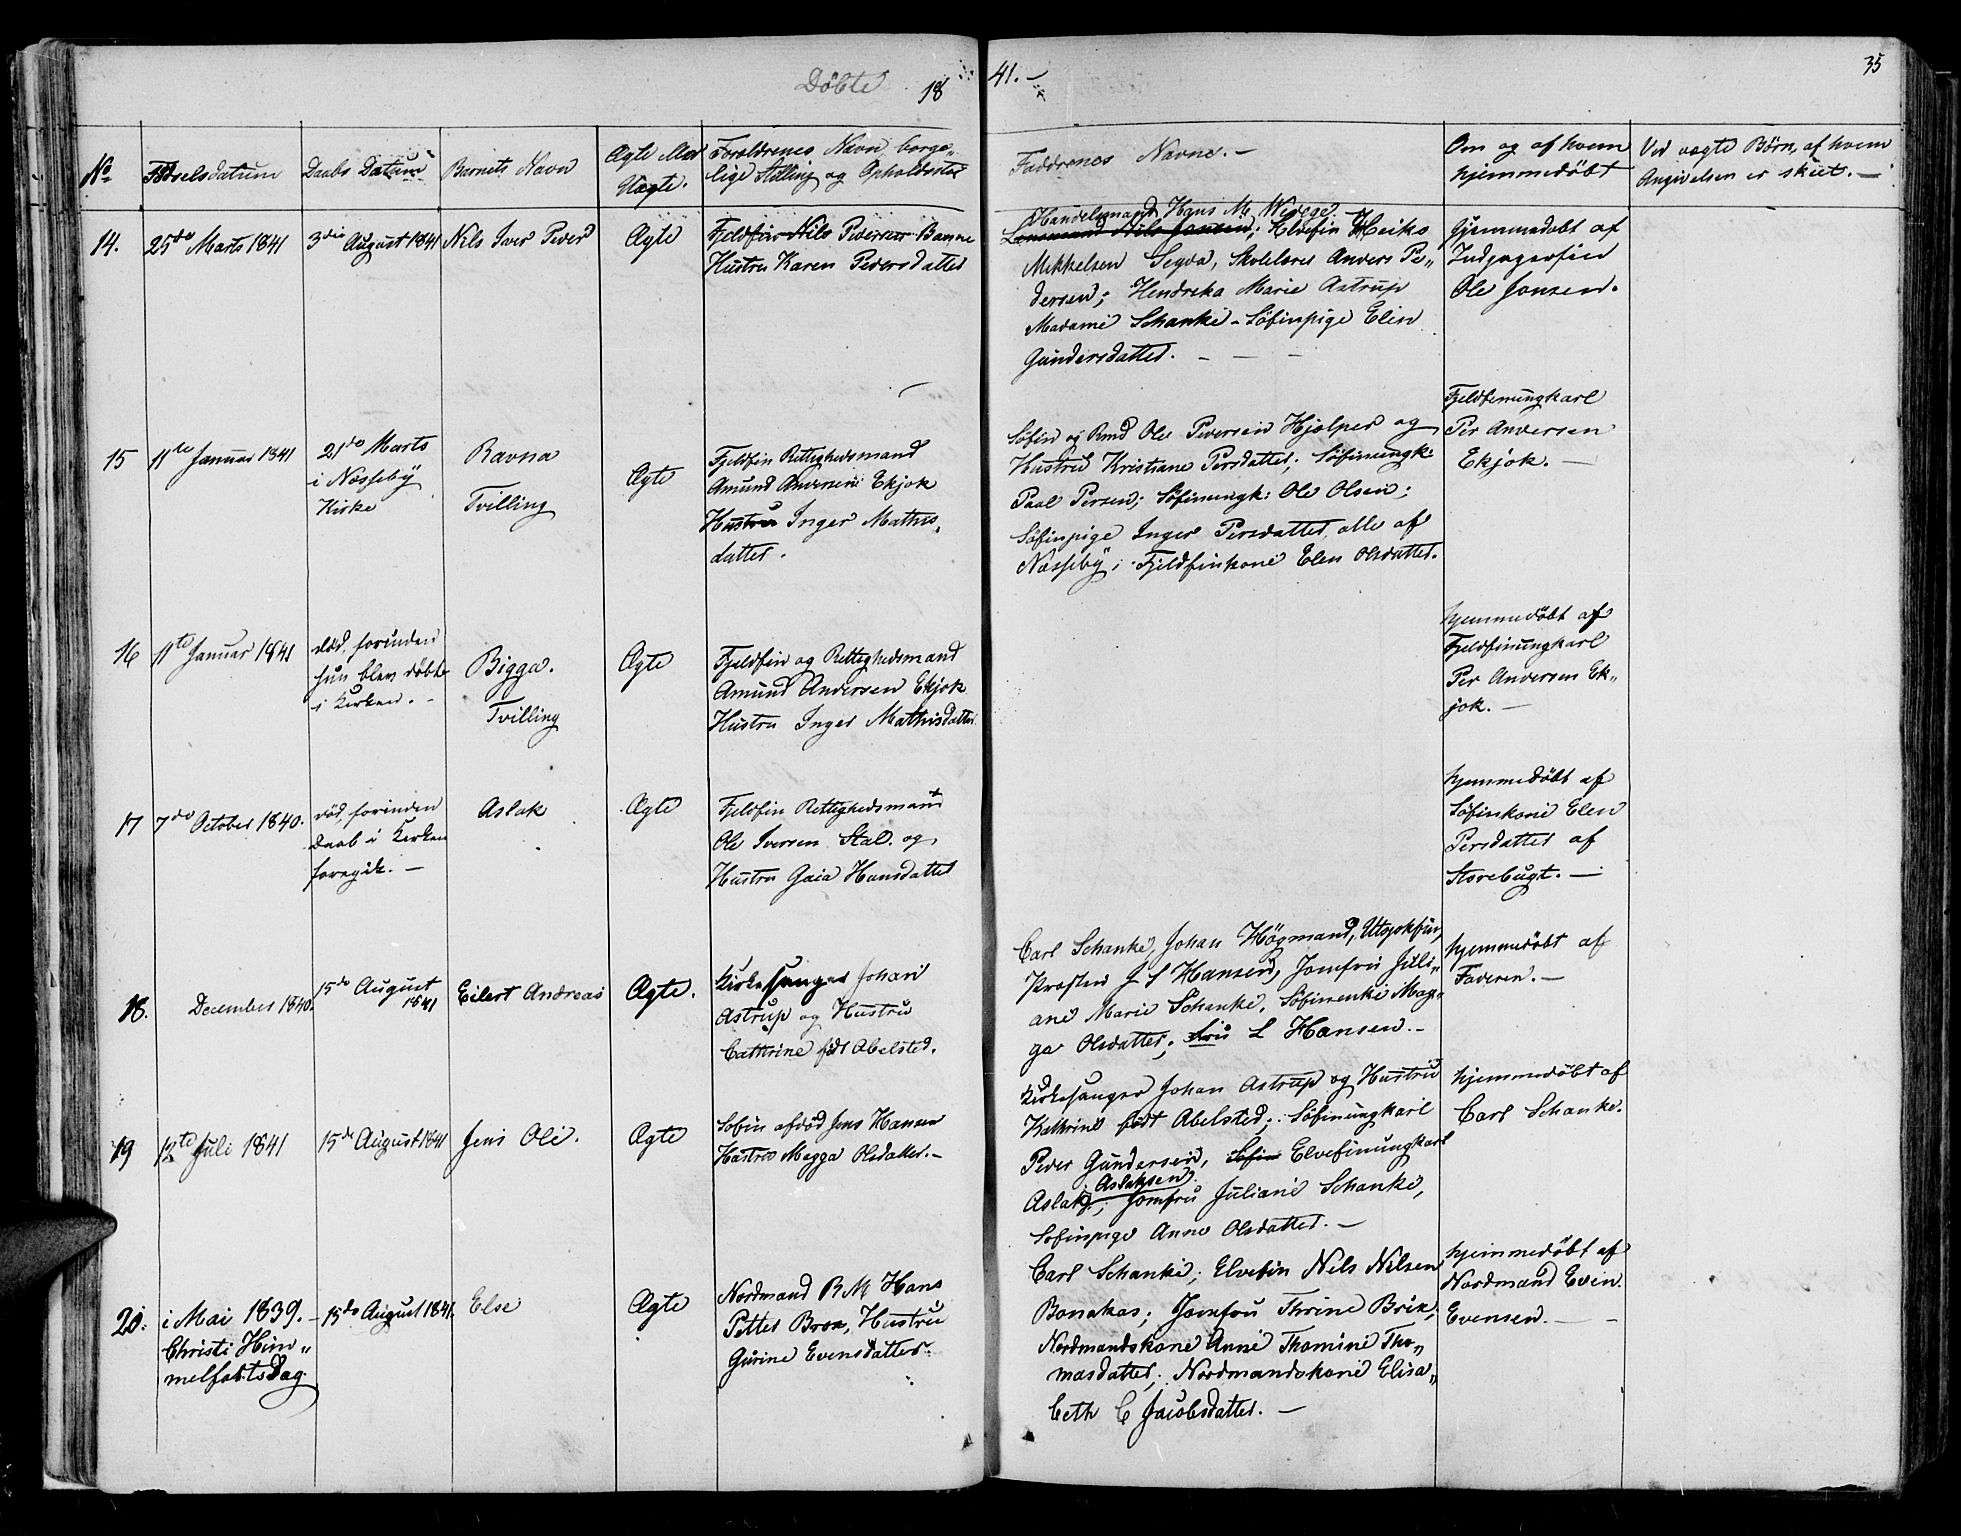 Døbte 18
41.-
35
No
Fødselsdatum
Daabs Datum
Barnets Navn
Ægte eller Uægte.
Forældrenes Navn, borger-
lige Stilling og Opholdssted
Faddrenes Navne.-
Om og af hvem
hjemmedøbt
Ved uægte Børn, af hvem
Angivelsen er skeet.-
14.
25de Marts 1841
3die August 1841
Nils Iver Peder
Ægte
Fjeldfin Nils Pedersen Banne
Hustru Karen Pedersdatter
Handelsmand Hans M.
Lensmand Nils Jonsen; Elvefin Heiko
Mikkelsen Seyda, Skolelærer Anders Pe-
dersen; Hendreka Marie Astrup
Madame Schanke - Søfinpige Elen
Gundersdatter. - - -
Hjemmedøbt af
Ole Jonsen.
15
11te Januar 1841
21de Marts
i Næsseby
Kirke
Ravna
Tvilling
Ægte
Fjeldfin Rettighedsmand
Amund Andersen Ekjok
Hustru Inger Mathis-
datter.
Søfin og Rmd Ole Pedersen Hjelper og
Hustru Kristiane Persdatter; Søfinungk:
Paal Persen; Søfinungk: Ole Olsen;
Søfinpige Inger Persdatter, alle af
Næsseby; Fjeldfinkone Elen Olsdatter.
Fjeldfinungkarl
Per Andersen
Ekjok.-
16
11te Januar 1841
død, forinden
hun blev døbt
i Kirken.-
Bigga.
Tvilling
Ægte
Fjeldfin og Rettighedsmand
Amund Andersen Ekjok
Hustru Inger Mathisdatter
hjemmedøbt af
Fjeldfinungkarl
Per Andersen Ek-
jok.-
17
7de October 1840.
død, forinden
Daab i Kirken
foregik.-
Aslak
Ægte
Fjeldfin Rettighedsmand
Ole Iversen Stal. og
Hustru Gaia Hansdatter
hjemmedøbt af
Søfinkone Elen
Persdatter af
Storebugt.-
18.
December 1840.
15de August
1841
Eilert Andreas
Ægte.
Kirkesanger Johan
Astrup og Hustru
Cathrine født Abelsted.
Carl Schanke, Johan Högmand, Utsjokfin,
Presten J S Hansen, Jomfru Juli-
ane Marie Schanke, Søfinenke Mag-
ga Olsdatter; Fru L Hansen.-
hjemmedøbt af
Faderen.-
19
12te Juli 1841
15de August 1841
Jens Ole.
Ægte
Søfin afdød Jens Hansen
Hustru Magga Olsdatter.-
Kirkesanger Johan Astrup og Hustru
Kathrine født Abelsted; Søfinungkarl
Peder Gundersen, Søfin Elvefinungkarl
Aslak Aslaksen; Jomfru Juliane Schanke,
Søfinpige Anne Olsdatter.-
hjemmedøbt af
Carl Schanke.
20.
i Mai 1839.-
Christi Him-
melfartsDag.
15de August 1841.
Else
Ægte
Nordmand R M Hans
Petter Brox, Hustru
Gurine Evensdatter.
Carl Schanke; Elvefin Nils Nilsen
Bonakas; Jomfru Thrine Brix;
Nordmandskone Anne Thomine Tho-
masdatter; Nordmandskone Elisa-
beth C Jacobsdatter.-
hjemmedøbt af
Nordmand Even
Evensen. - -